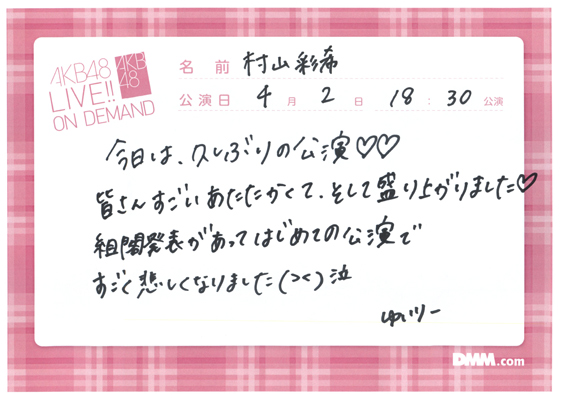 AKB48
LIVE!!
ON DEMAND
AKB
48
名前 村山彩希
公演日 4月2日 18:30公演
今日は、久しぶりの公演♡♡
皆さんすごいあたたかくて、そして盛り上がりました♡
組閣発表があってはじめての公演で
すごく悲しくなりました(><)泣
ゆいりー
DMM.com